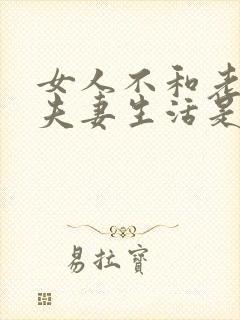 女人不和老
夫妻生活是
易拉寶